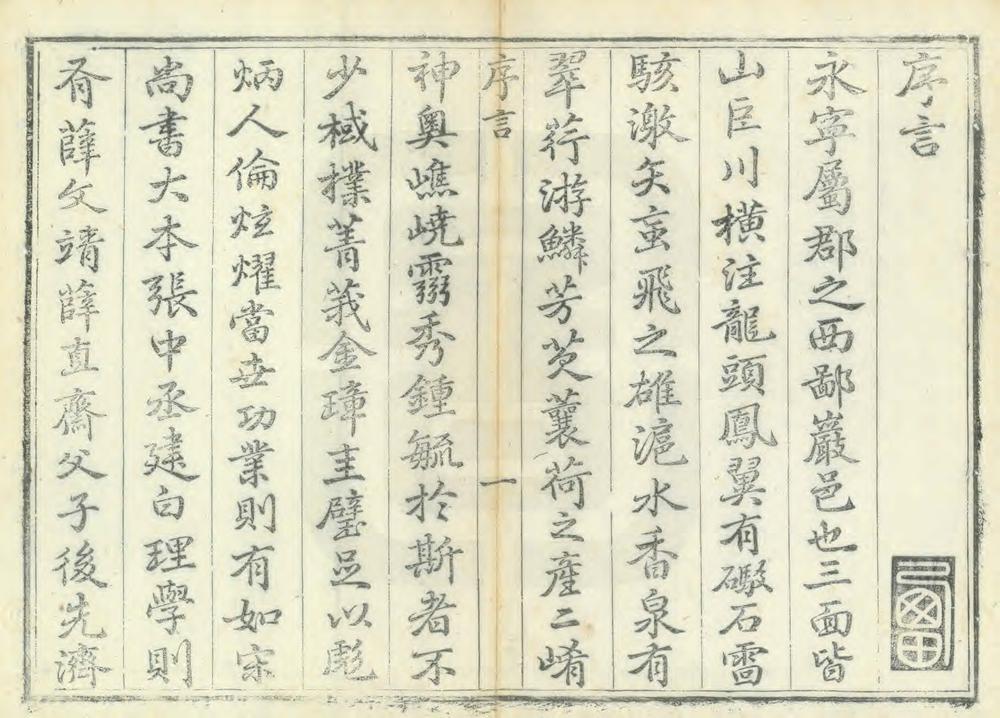 序言
永寧屬郡之西鄙巖邑也三面皆
山巨川橫注龍頭鳳翼有礮石雷
駭激矢䖟飛之雄滬水香泉有
翠荇游鱗芳芡蘘荷之產二崤
序言
一
神奧嶕嶢霛秀鍾毓於斯者不
少棫撲菁莪金璋圭璧足以彪
炳人倫炫燿當世功業則有如宋
尚書大本張中丞建白理學則
有薛文靖薛直齋父子後先濟